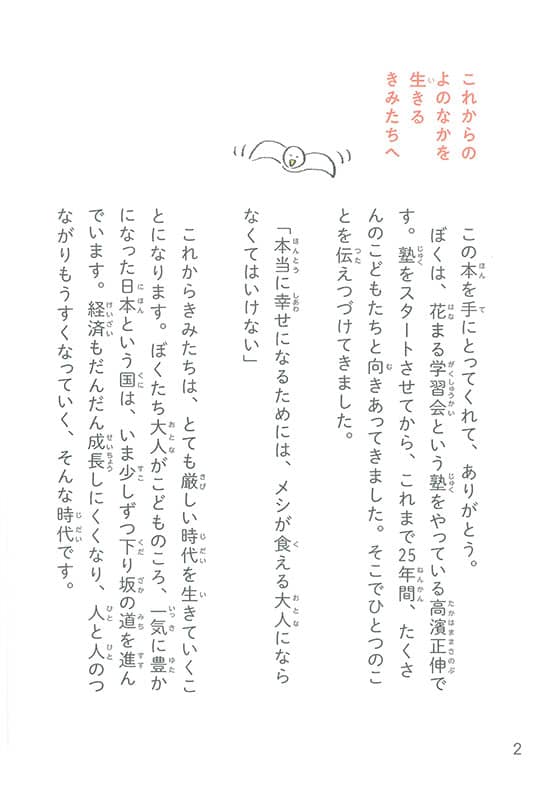 これからの
よのなかを
生きる
きみたちへ
この本を手にとってくれて、ありがとう。
ぼくは、花まる学習会という塾をやっている高濱正伸で
す。塾をスタートさせてから、これまで25年間、たくさ
んのこどもたちと向きあってきました。そこでひとつのこ
とを伝えつづけてきました。
「本当に幸せになるためには、メシが食える大人になら
なくてはいけない」
これからきみたちは、とても厳しい時代を生きていくこ
とになります。ぼくたち大人がこどものころ、一気に豊か
になった日本という国は、いま少しずつ下り坂の道を進ん
でいます。経済もだんだん成長しにくくなり、人と人のつ
ながりもうすくなっていく、そんな時代です。
2